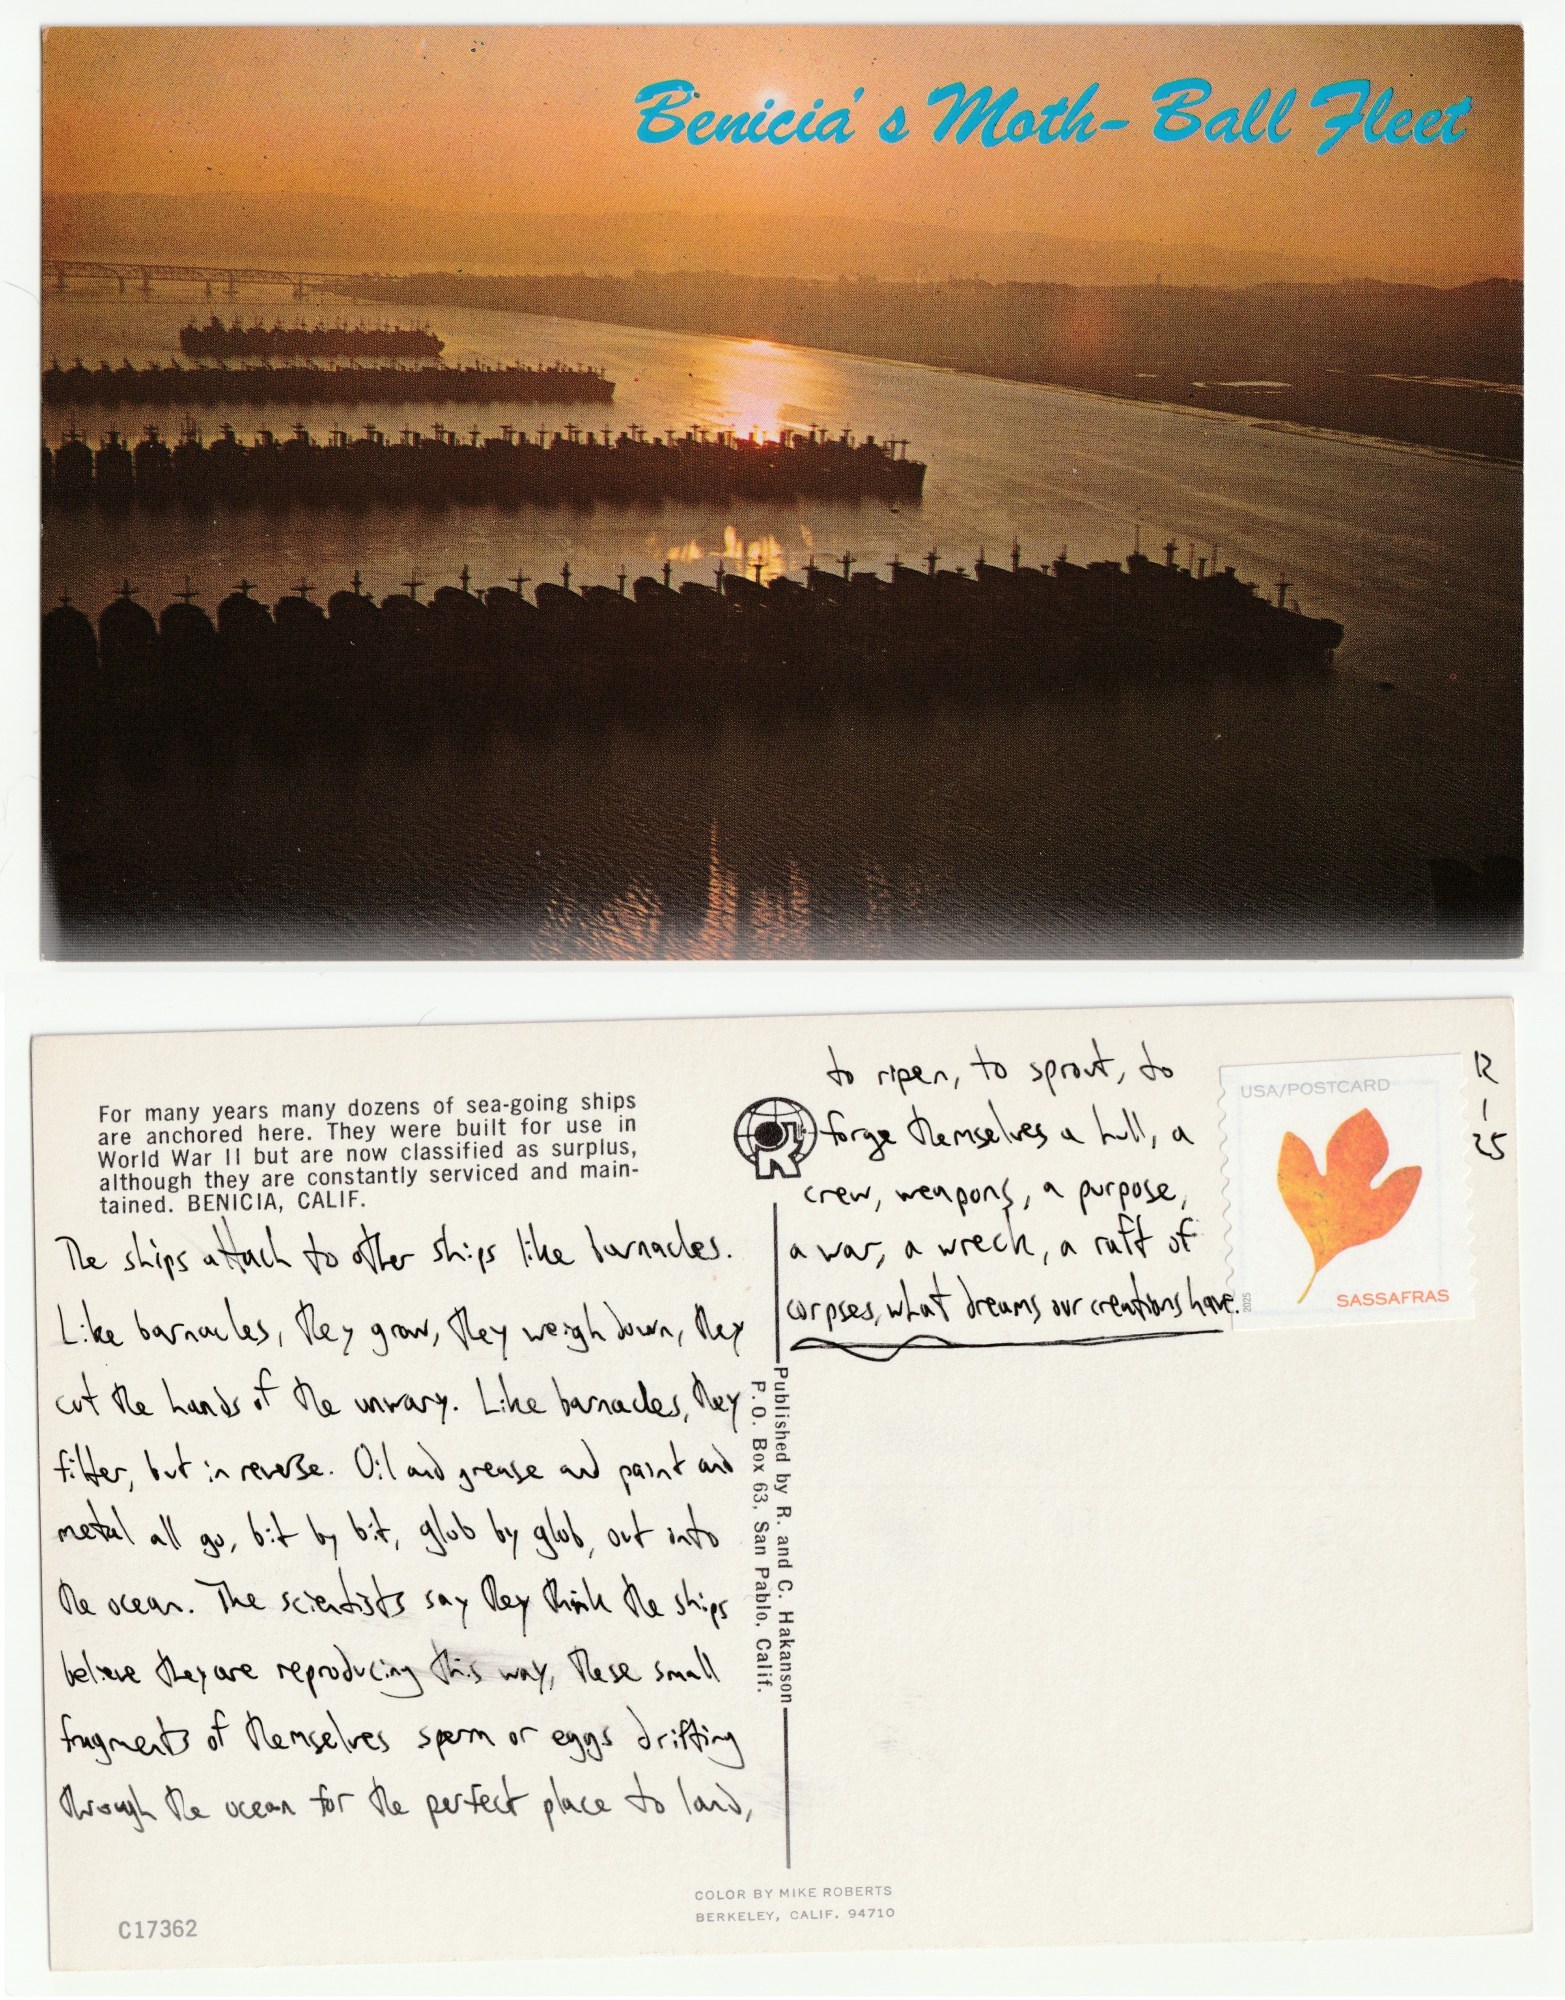 Benicia's Moth-Ball Fleet
For many years many dozens of sea-going ships
are anchored here. They were built for use in
World War II but are now classified as surplus,
although they are constantly serviced and main-
tained. BENICIA, CALIF.
The ships attach to other ships like barnacles.
Like barnacles, they grow, they weigh down, they
cut the hands of the unwary. Like barnacles, they
filter, but in reverse. Oil and grease and paint and
metal all go, bit by bit, glob by glob, out into
the ocean. The scientists say they think the ships
believe they are reproducing this way, these small
fragments of themselves sperm or eggs drifting
through the ocean for the perfect place to land,
to ripen, to sprout, to
forge themselves a hull, a
crew, weapons, a purpose,
a war, a wreck, a raft of
corpses, what dreams our creations have.
USA/POSTCARD
SASSAFRAS
2025
12
1
25
Published by R. and C. Hakanson
P.O. Box 63, San Pablo, Calif.
COLOR BY MIKE ROBERTS
BERKELEY, CALIF. 94710
C17362